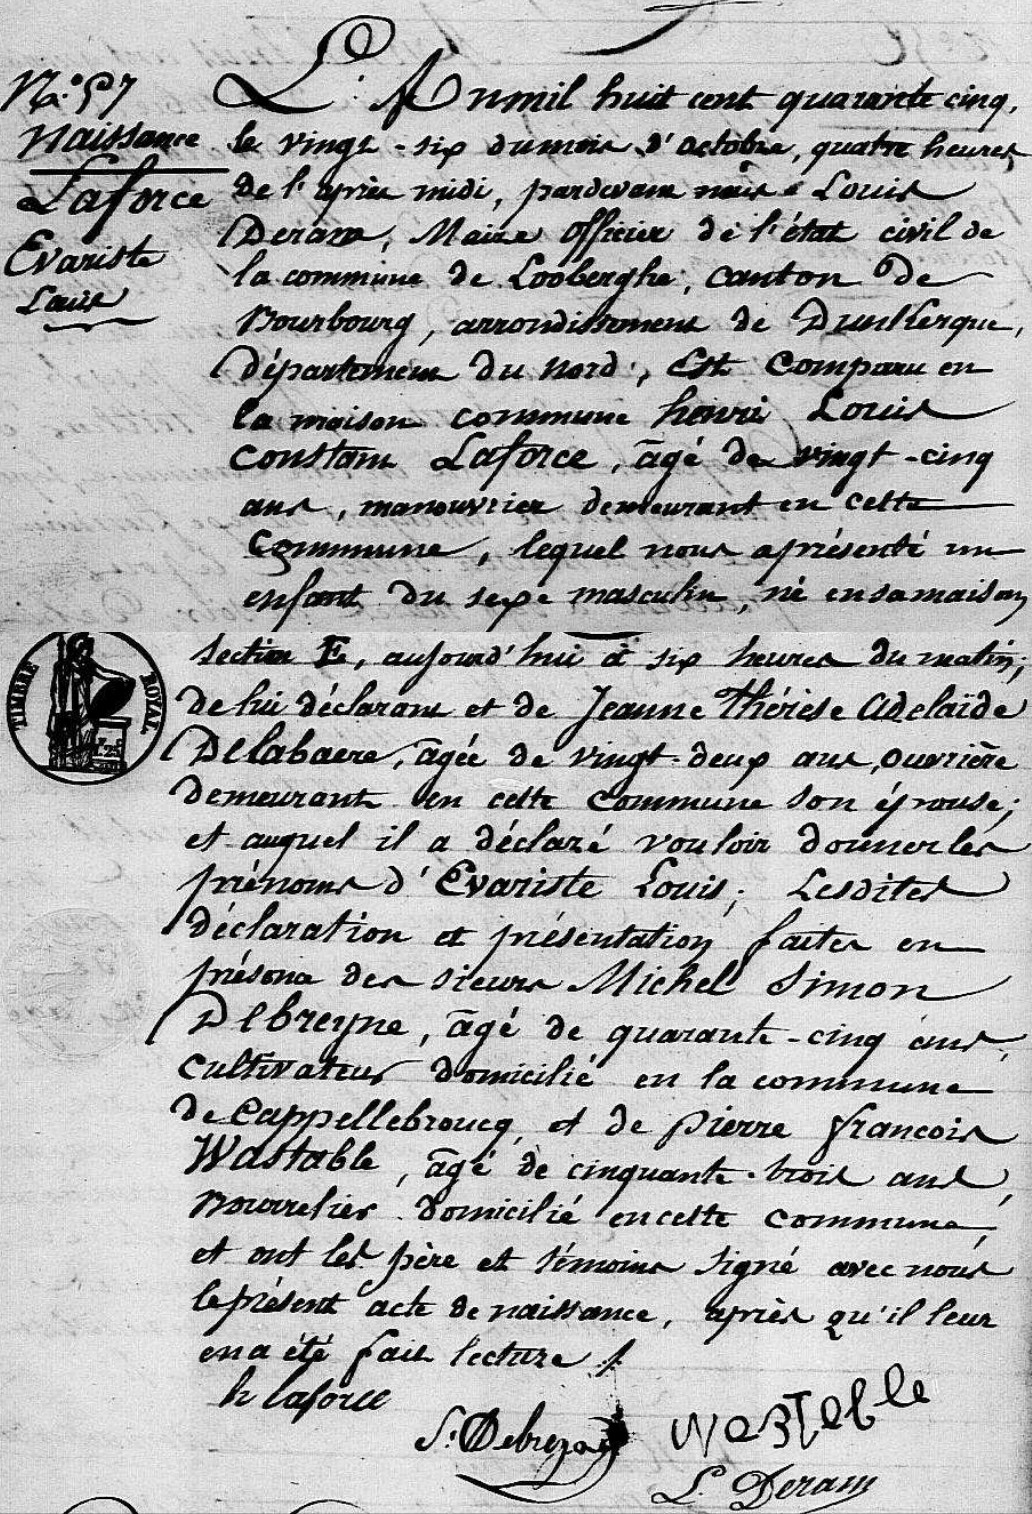 N.° 57
Naissance
Laforce
Evariste
Louis
L'An mil huit cent quarante cinq,
le vingt-six du mois d'octobre, quatre heures
de l'après midi, pardevant nous Louis
Deram, Maire officier de l'état civil de
la commune de Looberghe, canton de
Bourbourg, arrondissement de Dunkerque,
département du Nord, Est Comparu en
la maison commune henri Louis
Constant Laforce, âgé de vingt-cinq
ans, manouvrier demeurant en cette
Commune, lequel nous a présenté un
enfant du sexe masculin, né en sa maison,
TIMBRE ROYAL
Section E, aujourd'hui à six heures du matin;
de lui déclarant et de Jeanne Thérèse Adelaïde
Delabaere, âgée de vingt-deux ans, ouvrière
demeurant en cette commune son épouse;
et auquel il a déclaré vouloir donner les
prénoms d'Evariste Louis; Lesdites
déclaration et présentation faites en
présence des sieurs Michel Simon
Debreyne, âgé de quarante-cinq ans,
cultivateur domicilié en la commune
de Cappellebroucq, et de Pierre francois
Wastable, âgé de cinquante-trois ans,
Bourrelier domicilié en cette commune,
et ont les père et témoins signé avec nous
le présent acte de naissance, après qu'il leur
en a été fait lecture ./.
h laforce
S. Debreyne
Wastable
L. Deram